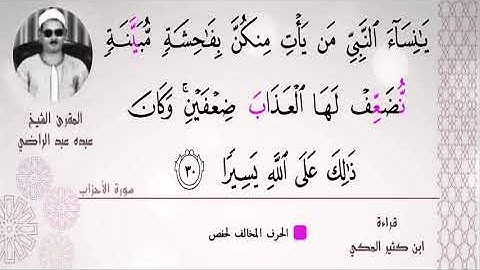 يَٰنِسَآءَ ٱلنَّبِيِّ مَن يَأۡتِ مِنكُنَّ بِفَٰحِشَةٖ مُّبَيَّنَةٖ
نُّضَعِّفۡ لَهَا ٱلۡعَذَابَ ضِعۡفَيۡنِۚ وَكَانَ
ذَٰلِكَ عَلَى ٱللَّهِ يَسِيرٗا ٣٠
المقرئ الشيخ
عبده عبد الراضي
سورة الأحزاب
قراءة
ابن كثير المكي
الحرف المخالف لحفص